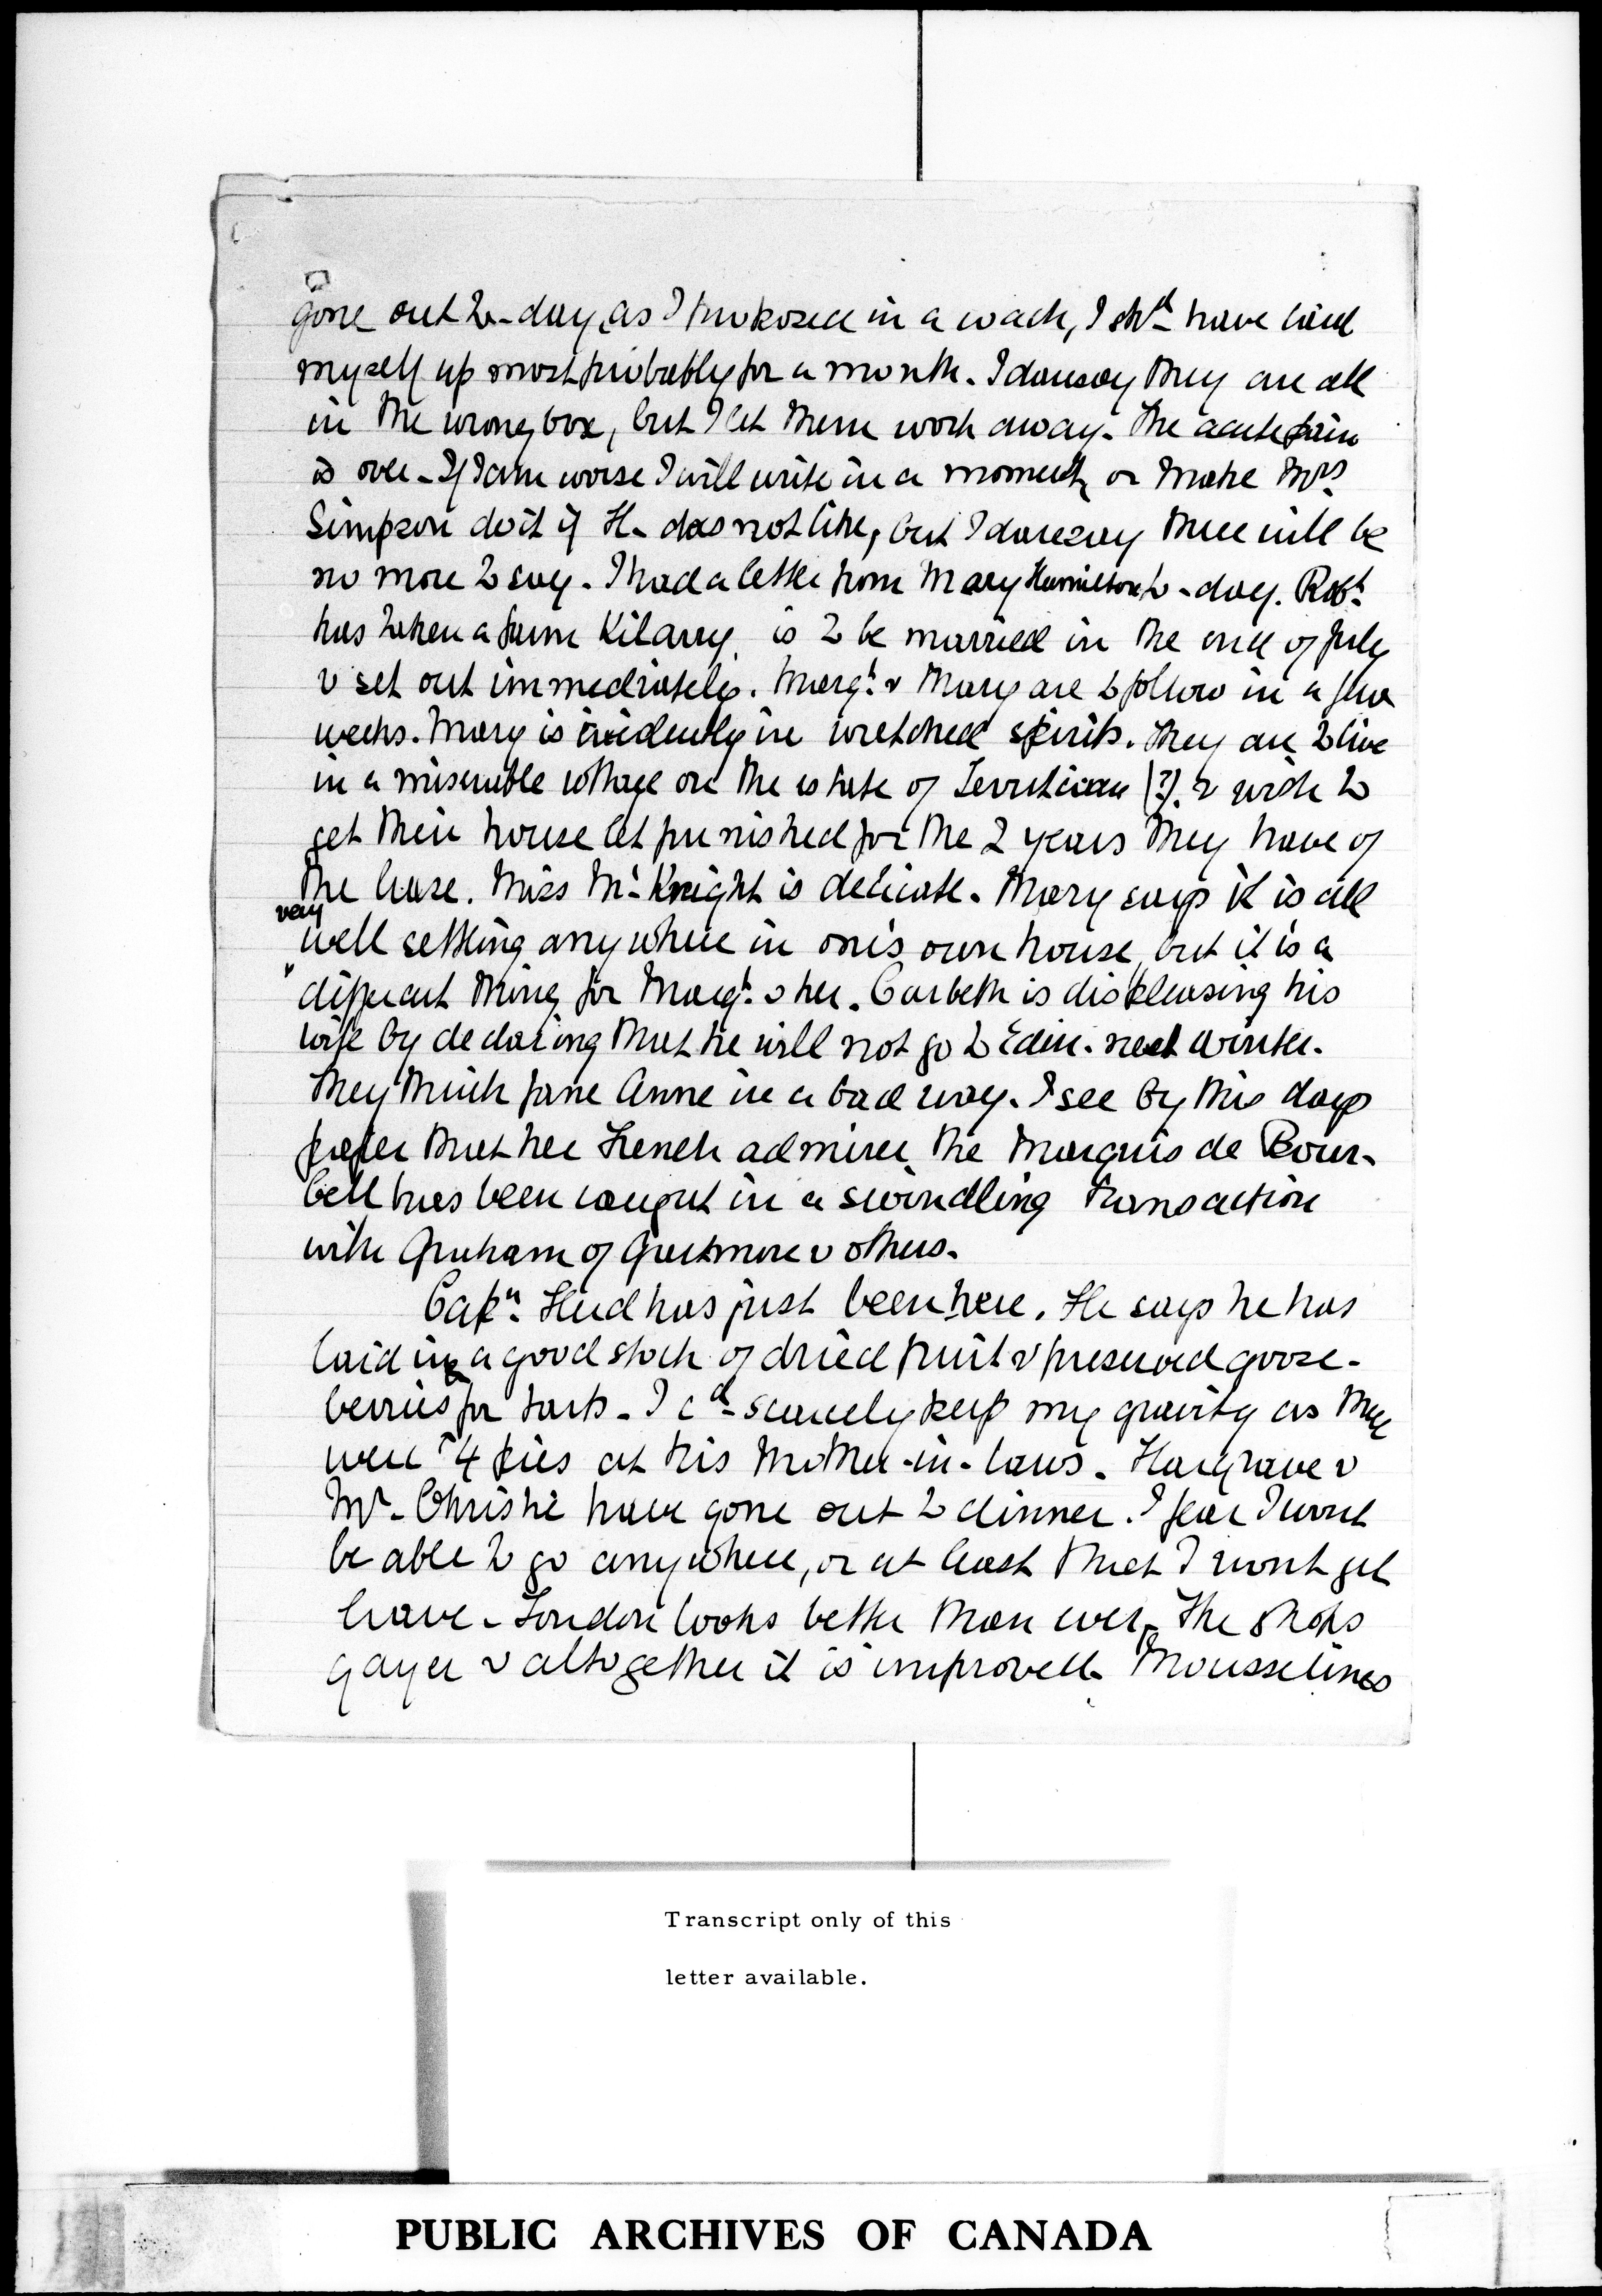 gone out to-day, as I proposed in a coach, I shd have laid
myself up most probably for a month. I daresay they are all
in the wrong box, but I let them work away. The acute pain
is over. If I am worse I will write in a moment, or make Mrs
Simpson do it if H. does not like, but I daresay there will be
no more to say. I had a letter from Mary Hamilton to-day. Robt
has taken a farm Kilarry, is to be married in the end of July
& set out immediately. Margt & Mary are to follow in a few
weeks. Mary is evidently in wretched spirits. They are to live
in a miserable cottage on the estate of (?) & wish to
get their house let furnished for the 2 years they have of
the lease. Miss Mc Knight is delicate. Mary says it is all
very
well settling anywhere in one's own house, but it is a
different thing for Margt & her. Carbeth is displeasing his
wife by declaring that he will not go to Edin. next winter.
They think Jane Anne in a bad way. I see by this days
paper that her French admirer, the Marquis de Bour-
bell has been caught in a swindling transaction
with Graham of Gartmore & others.
Capn Hud has just been here. He says he has
laid in a good stock of dried fruit & preserved goose-
berries for tarts. I cd scarcely keep my gravity as there
were 4 pies at his Mother-in-laws. Hargrave &
Mr. Christie have gone out to dinner. I fear I wont
be able to go anywhere, or at least that I wont get
leave. London looks better than ever, The shops
gayer & altogether it is improved. Mousselines
Transcript only of this
letter available.
PUBLIC ARCHIVES OF CANADA